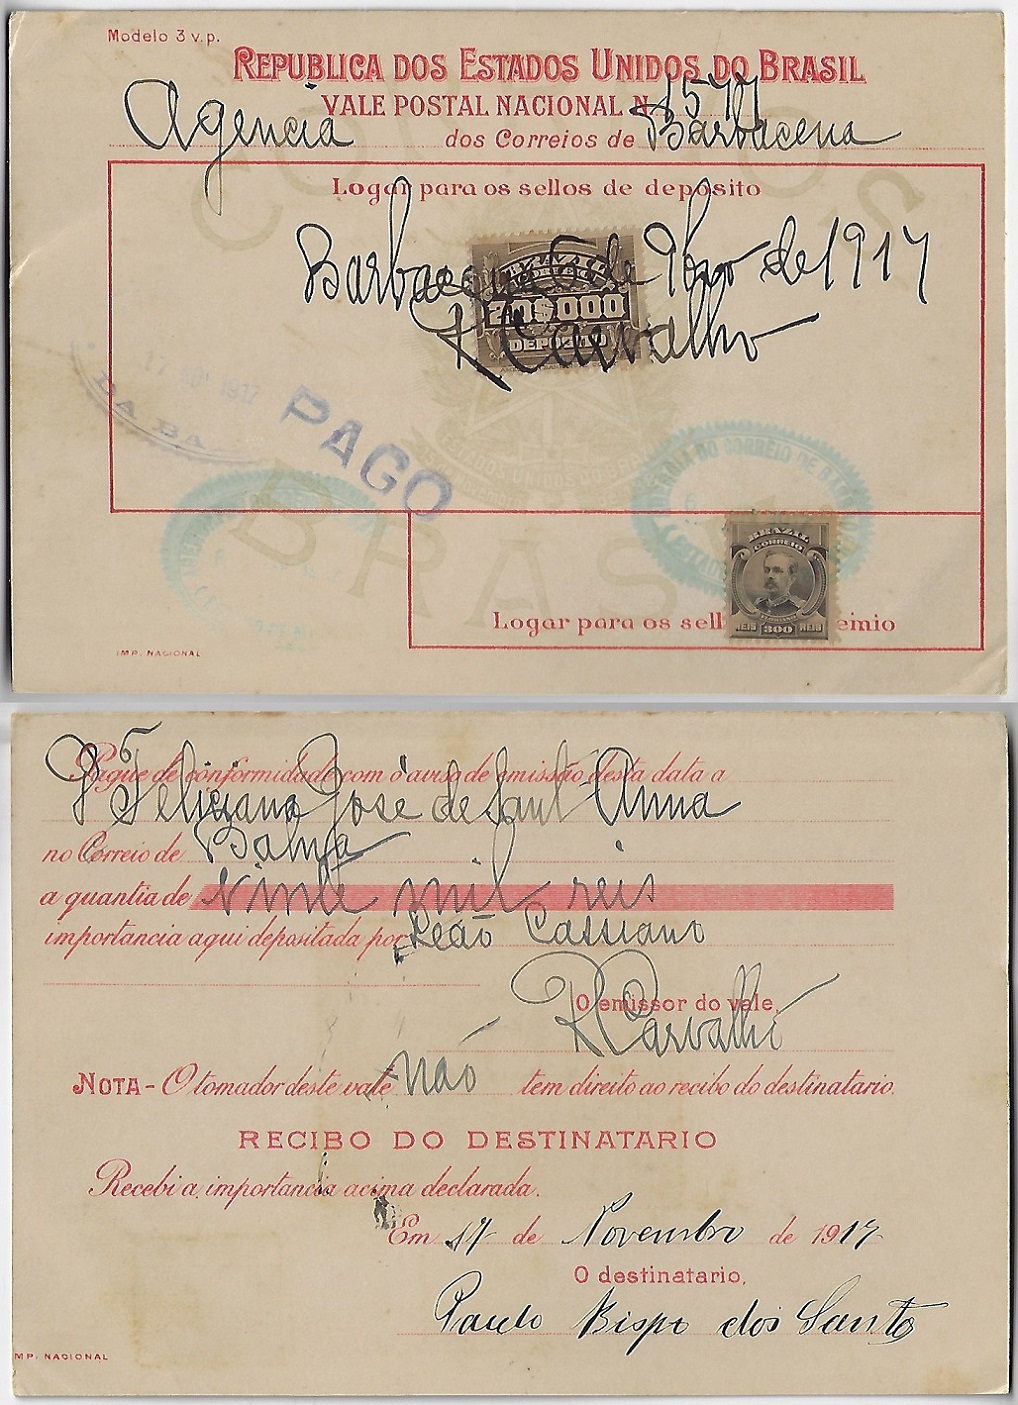 Modelo 3 v.p.
REPUBLICA DOS ESTADOS UNIDOS DO BRASIL
VALE POSTAL NACIONAL N. 1577
Agencia dos Correios de Barbacena
Logar para os sellos de deposito
Barbacena 6 de 9bro de 1917
BRAZIL
CORREIO
20$000
DEPOSITO
R Carvalho
1917
DA BA
PAGO
DO CORREIO DE
BRASIL
BRAZIL
CORREIO
REIS 300 REIS
Logar para os sell emio
IMP. NACIONAL
Pague de conformidade com o aviso de emissão desta data a
Feliciano José de Sant Anna
no Correio de Bahia
a quantia de vinte mil reis
importancia aqui depositada por Leão Cassiano
O emissor do vale,
R Carvalho
NOTA - O tomador deste vale não tem direito ao recibo do destinatario.
RECIBO DO DESTINATARIO
Recebi a importancia acima declarada.
Em 17 de Novembro de 1917
O destinatario,
Paulo Bispo dos Santos
MP. NACIONAL